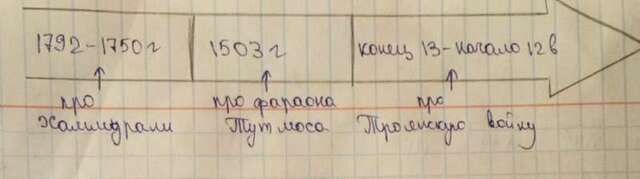 1792-1750г 1503г конец 13-начало 12в
про про фараона про
Хаммурапи Тутмоса Троянскую войну